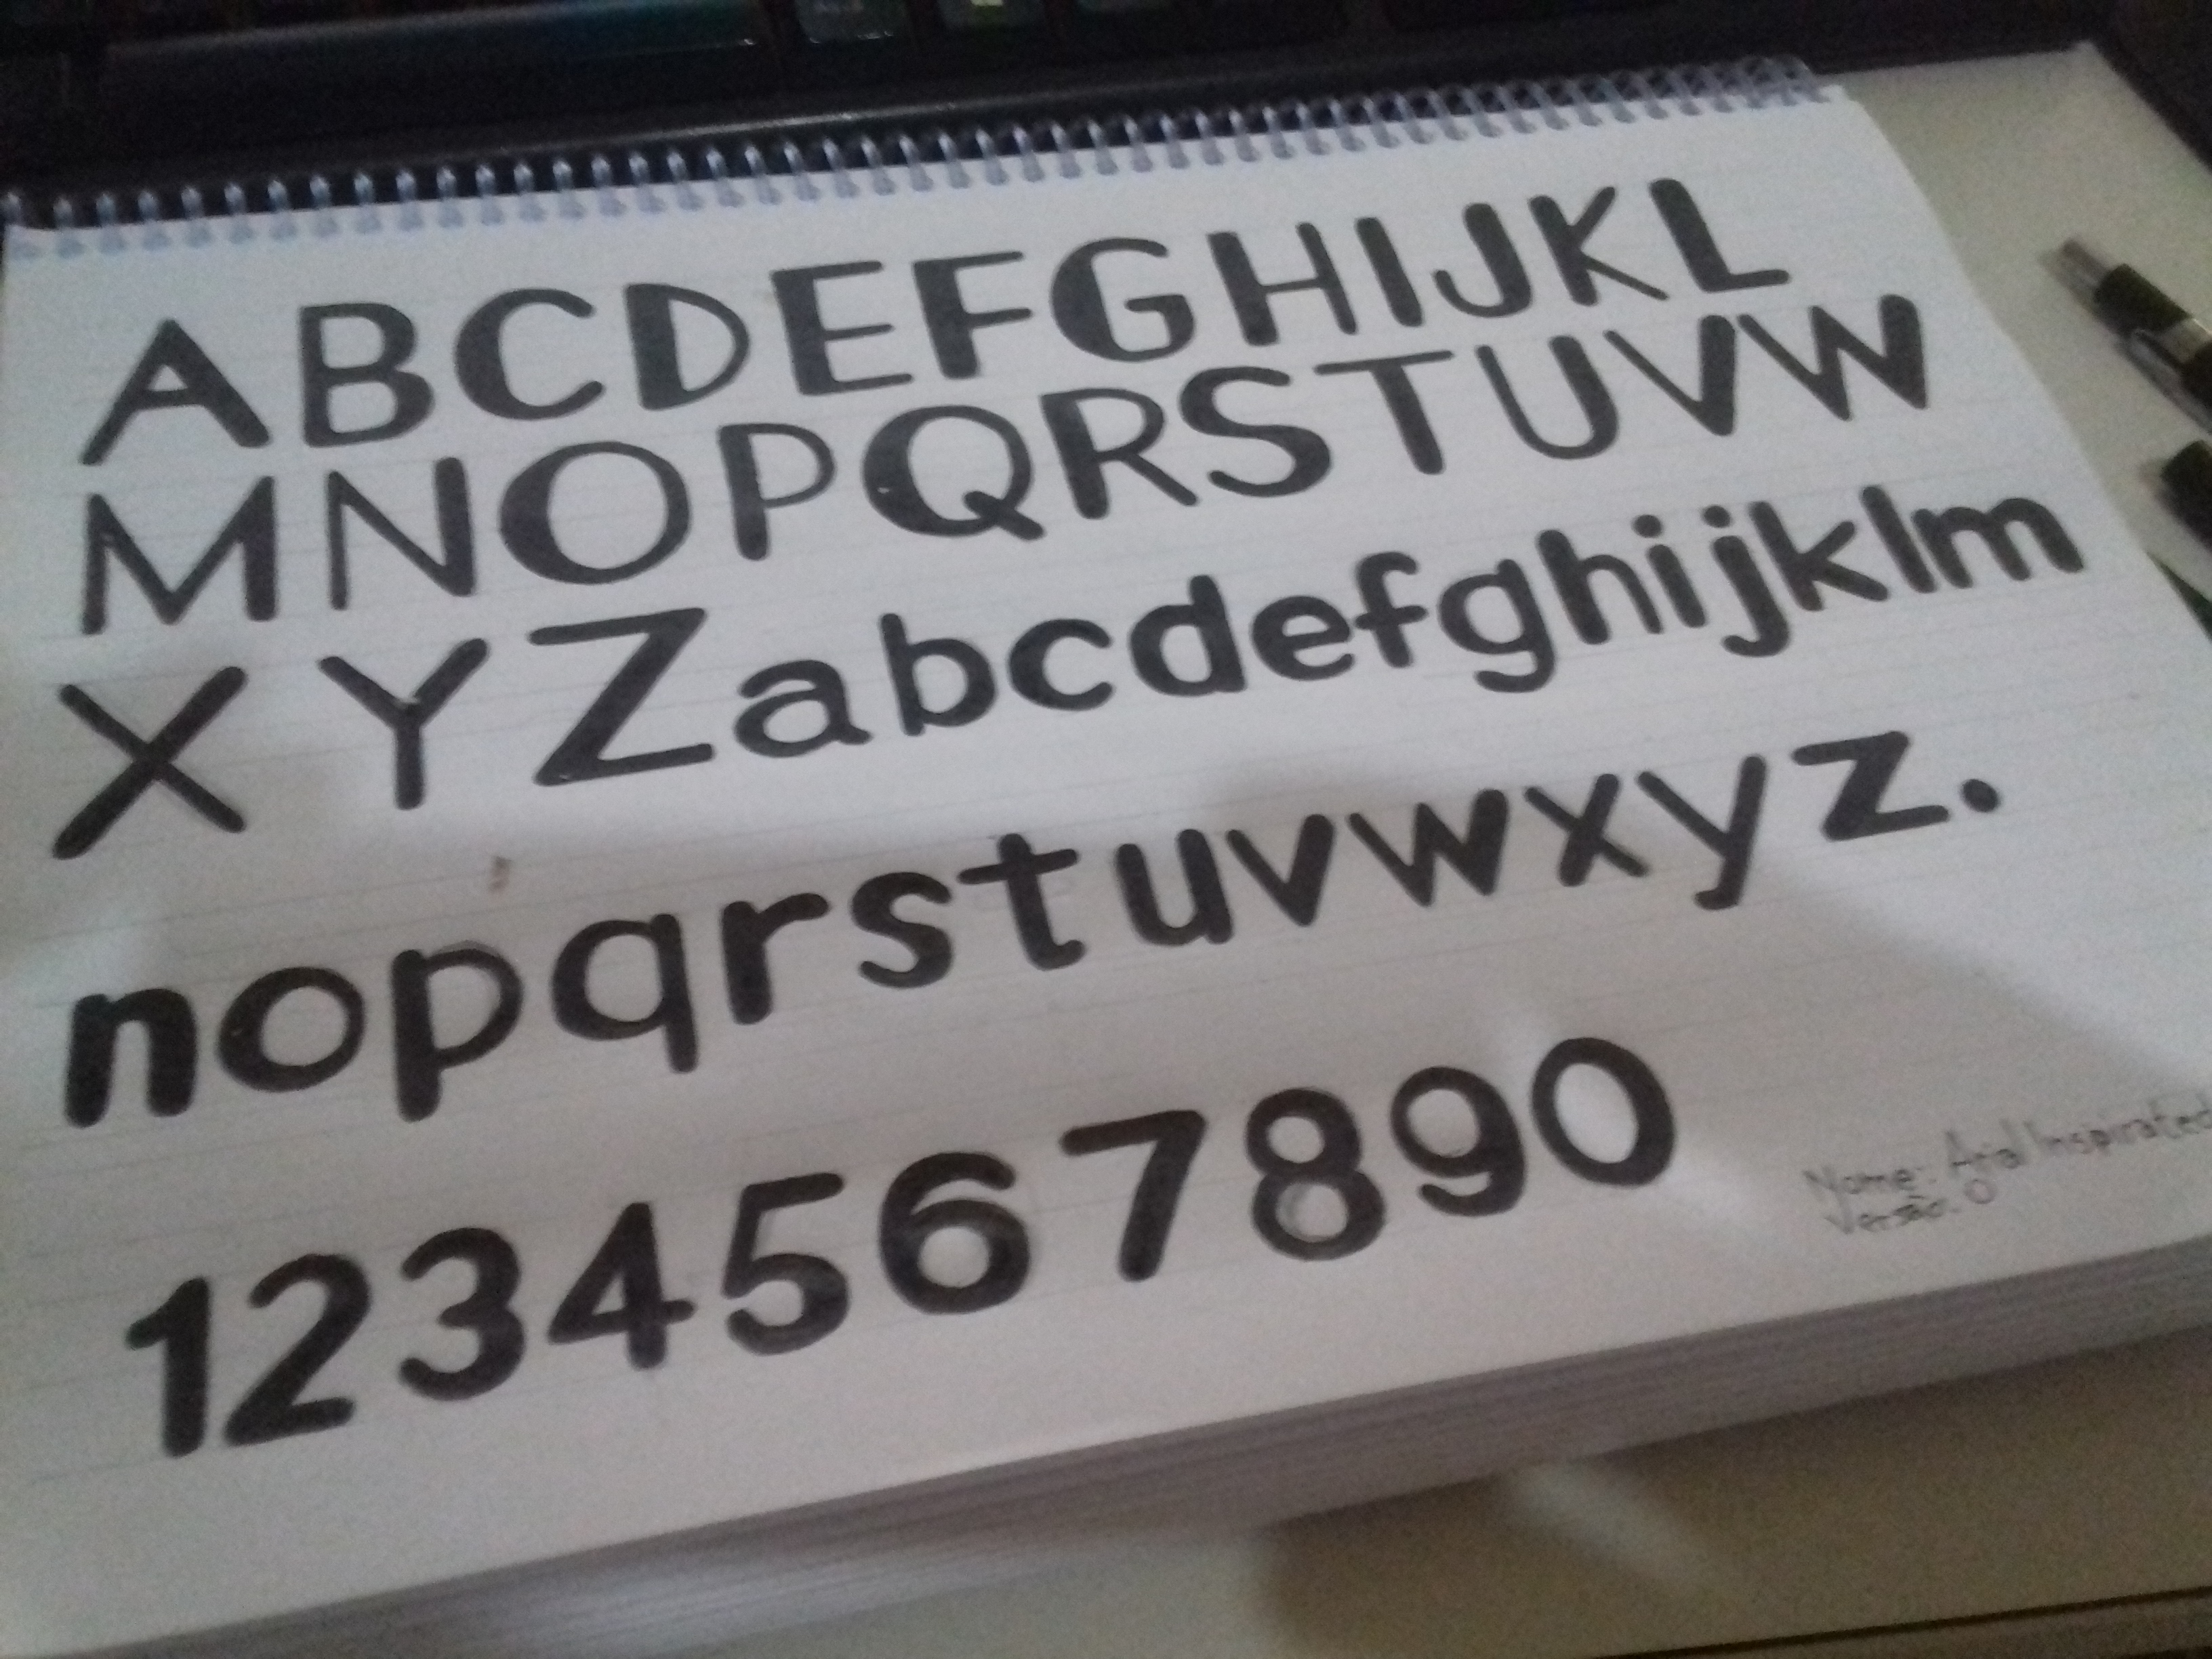 ABCDEFGHIJKL
MNOPQRSTUVW
XYZabcdefghijklm
nopqrstuvwxyz.
1234567890
Nome: Arial Inspirated
Versão: 0